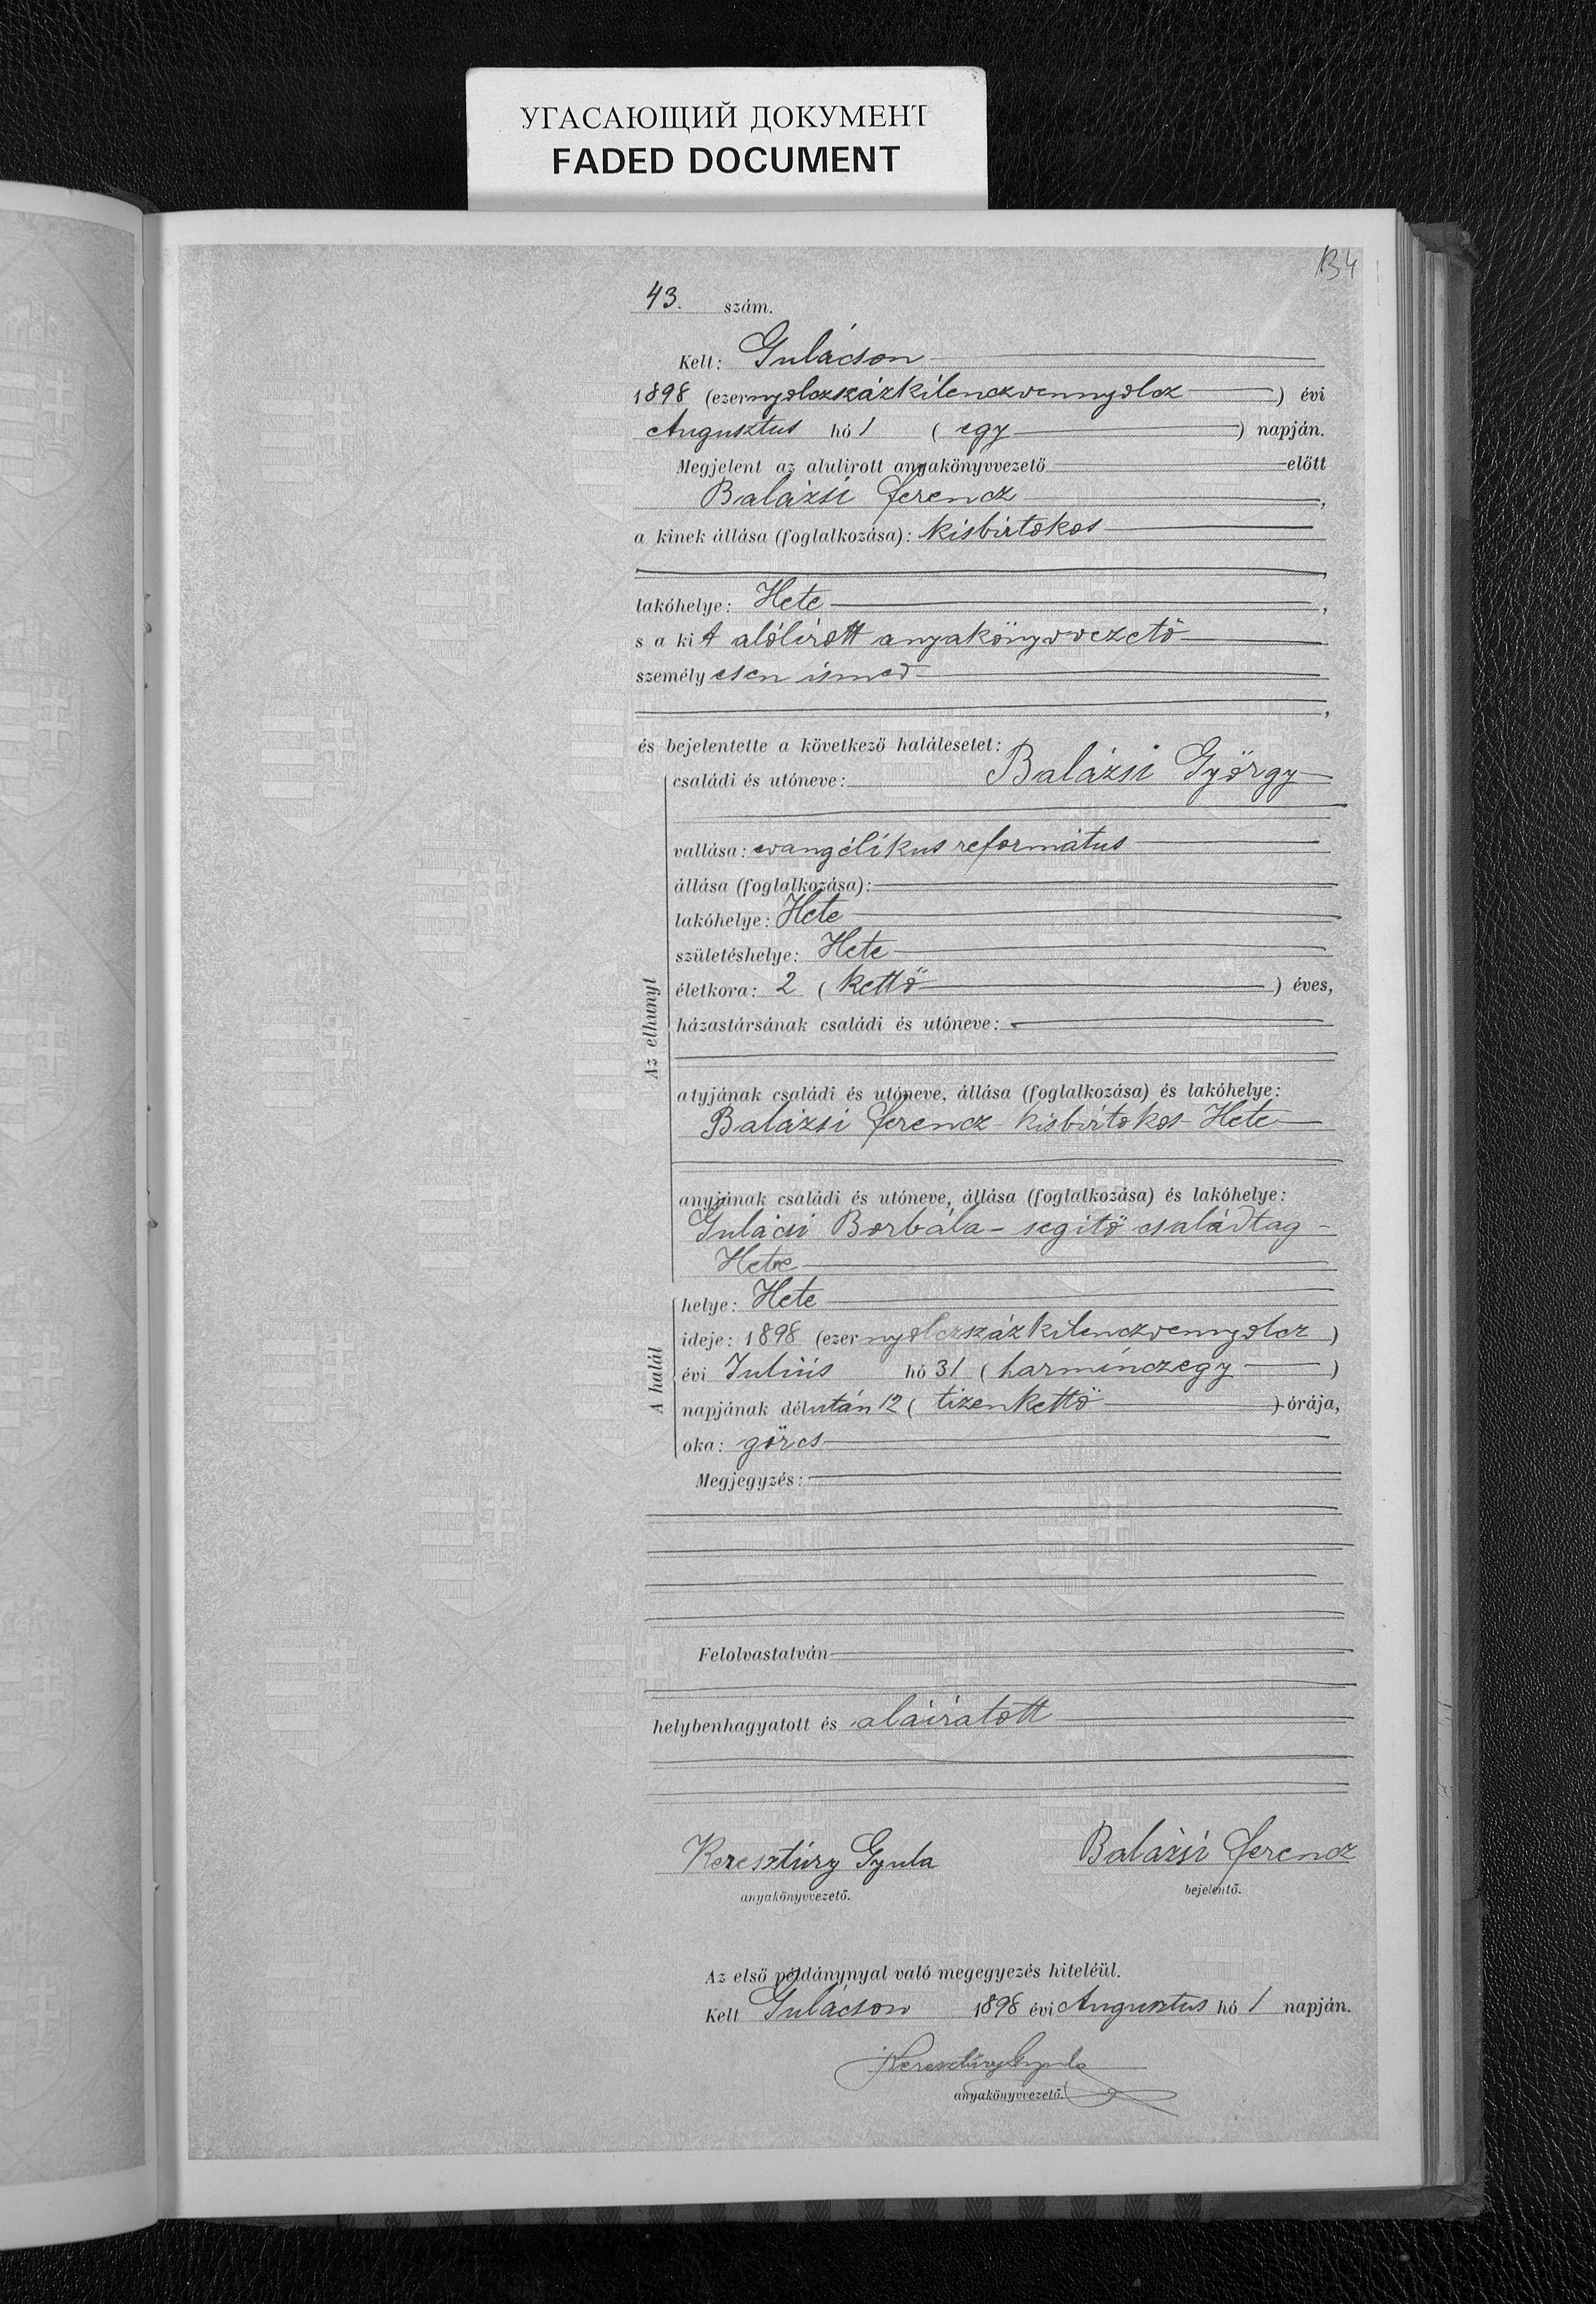 УГАСАЮЩИЙ ДОКУМЕНТ
FADED DOCUMENT
134
43. szám.
Kelt: Gulácson
1898 (ezernyolczszázkilenczvennyolcz) évi
Augusztus hó 1 (egy) napján.
Megjelent az alulirott anyakönyvvezető előtt
Balázsi Ferencz,
a kinek állása (foglalkozása): kisbirtokos
,
lakóhelye: Hete,
s a kit alólirott anyakönyvvezető
személyesen ismer
,
és bejelentette a következő halálesetet:
Az elhunyt
családi és utóneve: Balázsi György
vallása: evangélikus református
állása (foglalkozása):
lakóhelye: Hete
születéshelye: Hete
életkora: 2 (kettő) éves,
házastársának családi és utóneve:
atyjának családi és utóneve, állása (foglalkozása) és lakóhelye:
Balázsi Ferencz - kisbirtokos - Hete
anyjának családi és utóneve, állása (foglalkozása) és lakóhelye:
Gulácsi Borbála - segítő családtag -
Hete
A halál
helye: Hete
ideje: 1898 (ezernyolczszázkilenczvennyolcz)
évi Július hó 31 (harminczegy)
napjának délután 12 (tizenkettő) órája,
oka: görcs
Megjegyzés:
Felolvastatván
helybenhagyatott és aláiratott
Keresztúry Gyula Balázsi Ferencz
anyakönyvvezető. bejelentő.
Az első példánynyal való megegyezés hiteléül.
Kelt Gulácson 1898 évi Augusztus hó 1 napján.
Keresztúry Gyula
anyakönyvvezető.